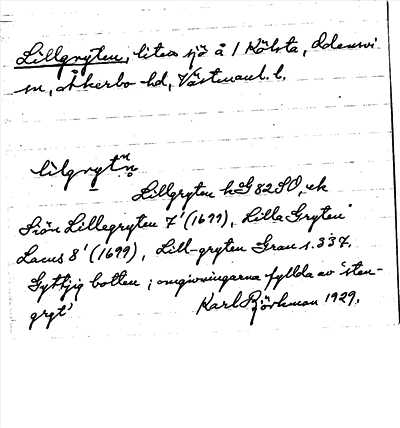 Lillgryten, liten sjö å 1 Kölsta, Odensvi
sn, Åkerbo hd, Västmanl. l.
lilgrytn
Lillgryten hG 82 SO, ek
Siön Lillegryten 7' (1699), Lilla Gryten
Lacus 8' (1699), Lill-gryten Grau s. 337.
Gyttjig botten; omgivningarna fyllda av 'sten-
gryt'
Karl Björkman 1929.